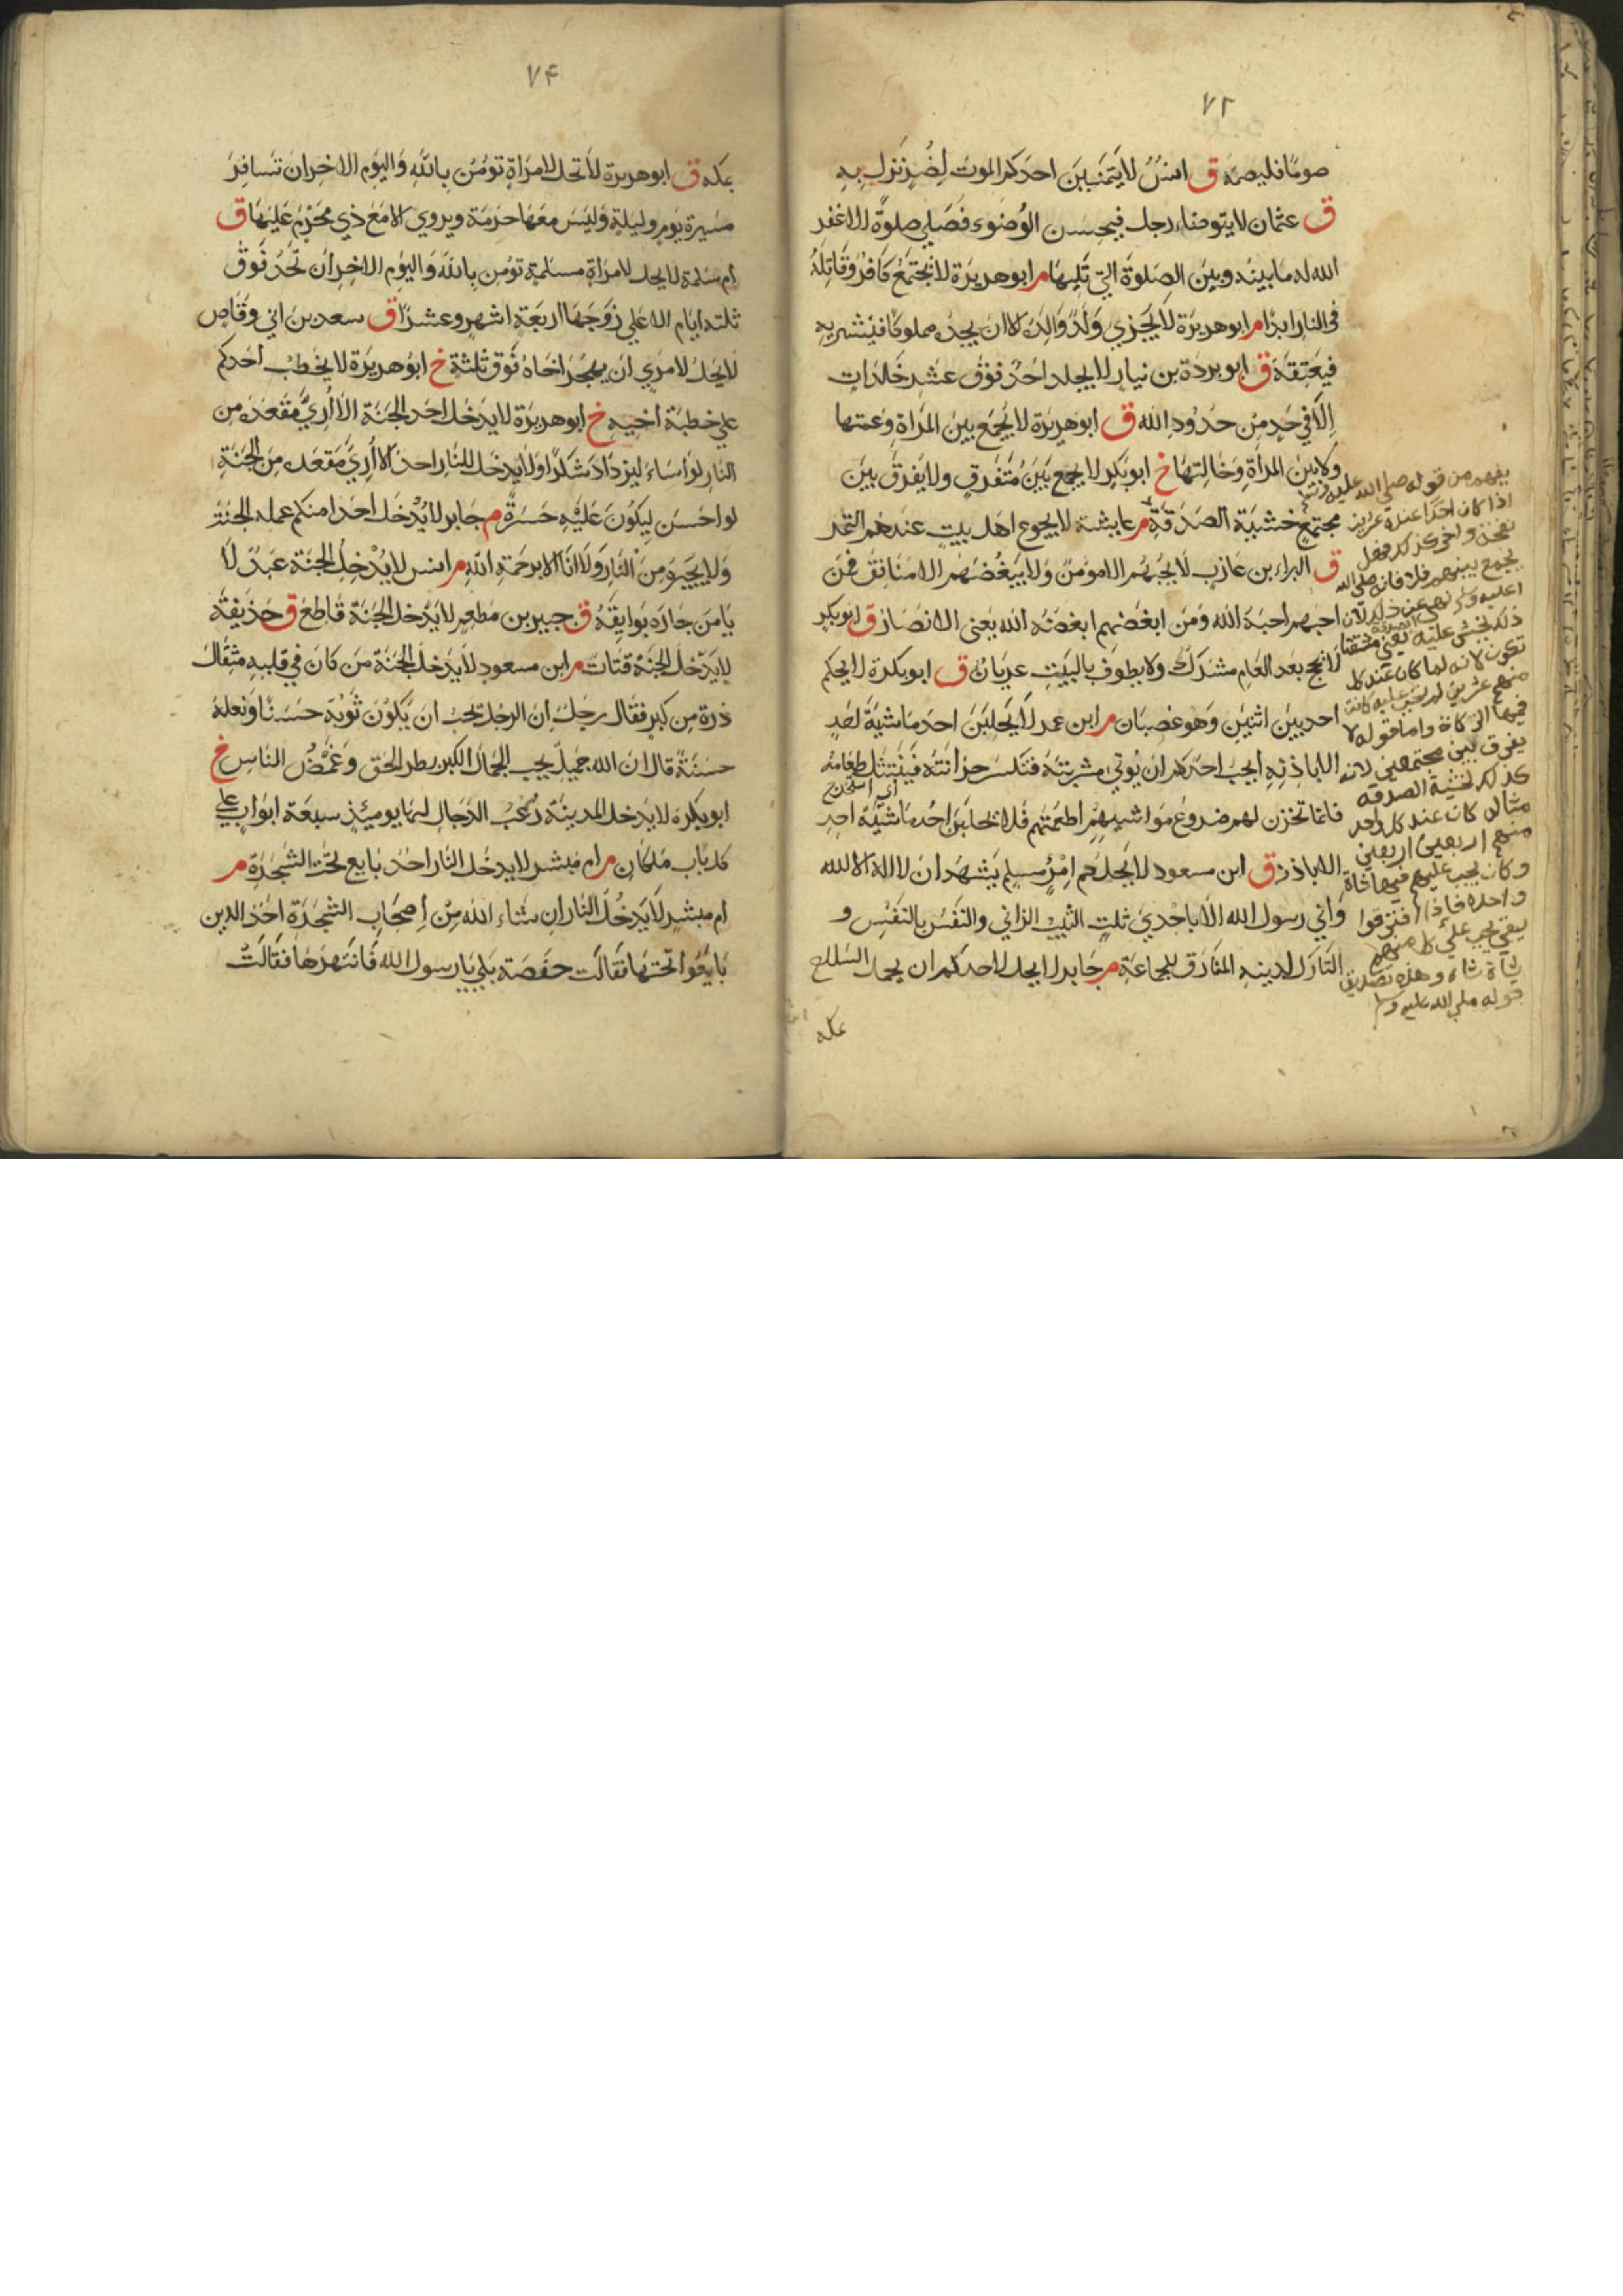 ٧٢
صومًا فليصمه ق انسٌ لا يَتَمَنَّيَنَّ احدكم الموتَ لِضُرٍّ نَزَلَ بِهِ
ق عثمان لا يتوضاء رجل فيحسن الوُضوء فَيُصَلّي صلوةً الا غفر
الله له ما بينه وبين الصلوة التي تليها م ابو هريرة لا يجتمع كافر وقاتله
في النار ابدًا م ابو هريرة لا يَجزي وَلَدٌ وَالِدَهُ الا ان يجده مملوكا فيشتريه
فيعتقه ق ابو بردة بن نيار لا يجلد احدٌ فوق عشر جَلَداتٍ
اِلّا في حَدٍ مِن حدود الله ق ابو هريرة لا يُجمَع بين المرأة وعمتها
ولا بين المرأة وخالتها خ ابو بكر لا يجمع بين مُتَفرقٍ ولا يفرق بين
مجتمعٍ خشية الصدقة م عايشة لا يجوع اهل بيتٍ عندهم التمر
ق البراء بن عازب لا يحبّهم الا مؤمن ولا يبغضهم الا منافق فمن
احبهم احبه الله ومن ابغضهم ابغضه الله يعني الانصار ق ابو بكر
لا يحج بعد العام مشرك ولا يطوف بالبيت عريان ق ابو بكرة لا يحكم
احد بين اثنين وهو غضبان م ابن عمر لا يَحلبَن احد ماشية احدٍ
الا باذنه ايحب احدكم ان يؤتي مشربته فتكسر خزانته فينتثل طعامه
اي استخرج
فانما تخزن لهم ضروع مواشيهم اطعمتهم فلا يحلبن احد ماشية احدٍ
الا باذنه ق ابن مسعود لا يحل دم امرئ مسلم يشهد ان لا اله الا الله
وَاني رسول الله الا باحدي ثلثٍ الثيب الزاني والنفس بالنفس و
التارك لدينه المفارق للجماعة م جابر لا يحل لاحدكم ان يحمل السلاح
عكه
يفهم من قوله صلى الله عليه وسلم
اذا كان احدًا عنده عزيز
يجمع بينهم فلا فانه صلى الله
عليه وسلم نهى عن ذلك لان
تكون لانه لما كان عند كل
فيها الزكاة واما قوله لا
يفرق بين مجتمعين لانه
كذلك لخشية الصدقة
مثاله كان عند كل واحد
منهم اربعين اربعين
وكان يجب عليهم فيها شاة
واحدة فاذا افترقوا
يبقي يجب علي كل منهم
شاة شاة وهذه تصديق
قوله صلى الله عليه وسلم
٧٤
بمكة ق ابو هريرة لا تحل لامرأة تؤمن بالله واليوم الاخر ان تسافر
مسيرة يوم وليلة وليس معها حرمة ويروي الا مع ذي محرم عليها ق
ام سلمة لا يحل لامرأة مسلمة تؤمن بالله واليوم الاخر ان تحد فوق
ثلثة ايام الا علي زوجها اربعة اشهر وعشرًا ق سعد بن ابي وقاص
لا يحل لامري ان يهجر اخاه فوق ثلثة خ ابو هريرة لا يخطب احدكم
علي خطبة اخيه خ ابو هريرة لا يدخل احد الجنة الا اُري مقعده من
النار لو اساء ليزداد شكرًا ولا يدخل النار احد الا اُري مقعده من الجنة
لو احسن ليكون عليه حسرةً م جابر لا يُدخل احدا منكم عمله الجنة
ولا يجيره من النار ولا انا الا برحمة الله م انس لا يُدخل الجنة عبدٌ لا
يامن جاره بوايقه ق جبير بن مطعم لا يدخل الجنة قاطع ق حذيفة
لا يدخل الجنة قتات م ابن مسعود لا يدخل الجنة من كان في قلبه مثقال
ذرة من كبر فقال رجل ان الرجل يحب ان يكون ثوبه حسنًا ونعله
حسنةً قال ان الله جميل يحب الجمال الكبر بطر الحق وغمض الناس خ
ابو بكرة لا يدخل المدينة رعب الدجال لها يومئذ سبعة ابواب علي
كل باب ملكان م ام مبشر لا يدخل النار احد بايع تحت الشجرة م
ام مبشر لا يدخل النار ان شاء الله مِن اصحاب الشجرة احد الذين
بايعوا تحتها فقالت حفصة بلي يا رسول الله فانتهرها فقالت